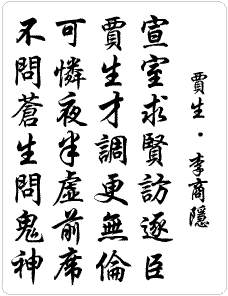 賈生·李商隱
宣室求賢訪逐臣
賈生才調更無倫
可憐夜半虛前席
不問蒼生問鬼神